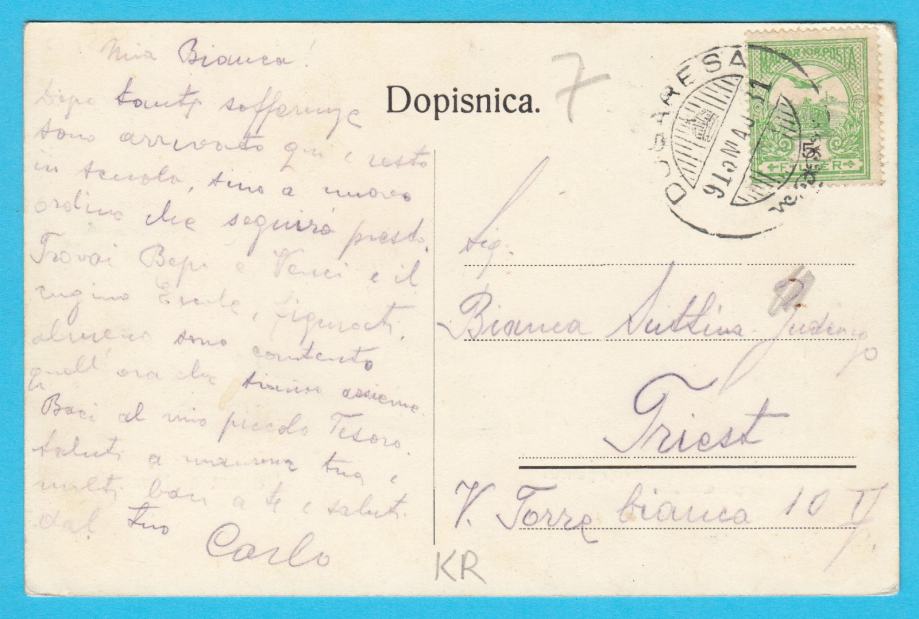 Mia Bianca!
Dopo tante sofferenze
sono arrivato qui e resto
in scuola, sino a nuovo
ordine che seguirà presto.
Trovai Bepi e Venci e il
cugino Ercole, figurati,
almeno sono contento
quell'ora che siamo assieme.
Baci al mio piccolo Tesoro.
Saluti a mamma tua e
molti baci a te e saluti
dal tuo
Carlo
Dopisnica.
7
MAGYAR KIR. POSTA
FILLÉR
Sig.
Bianca
Triest
V. Torre bianca 10 V
KR